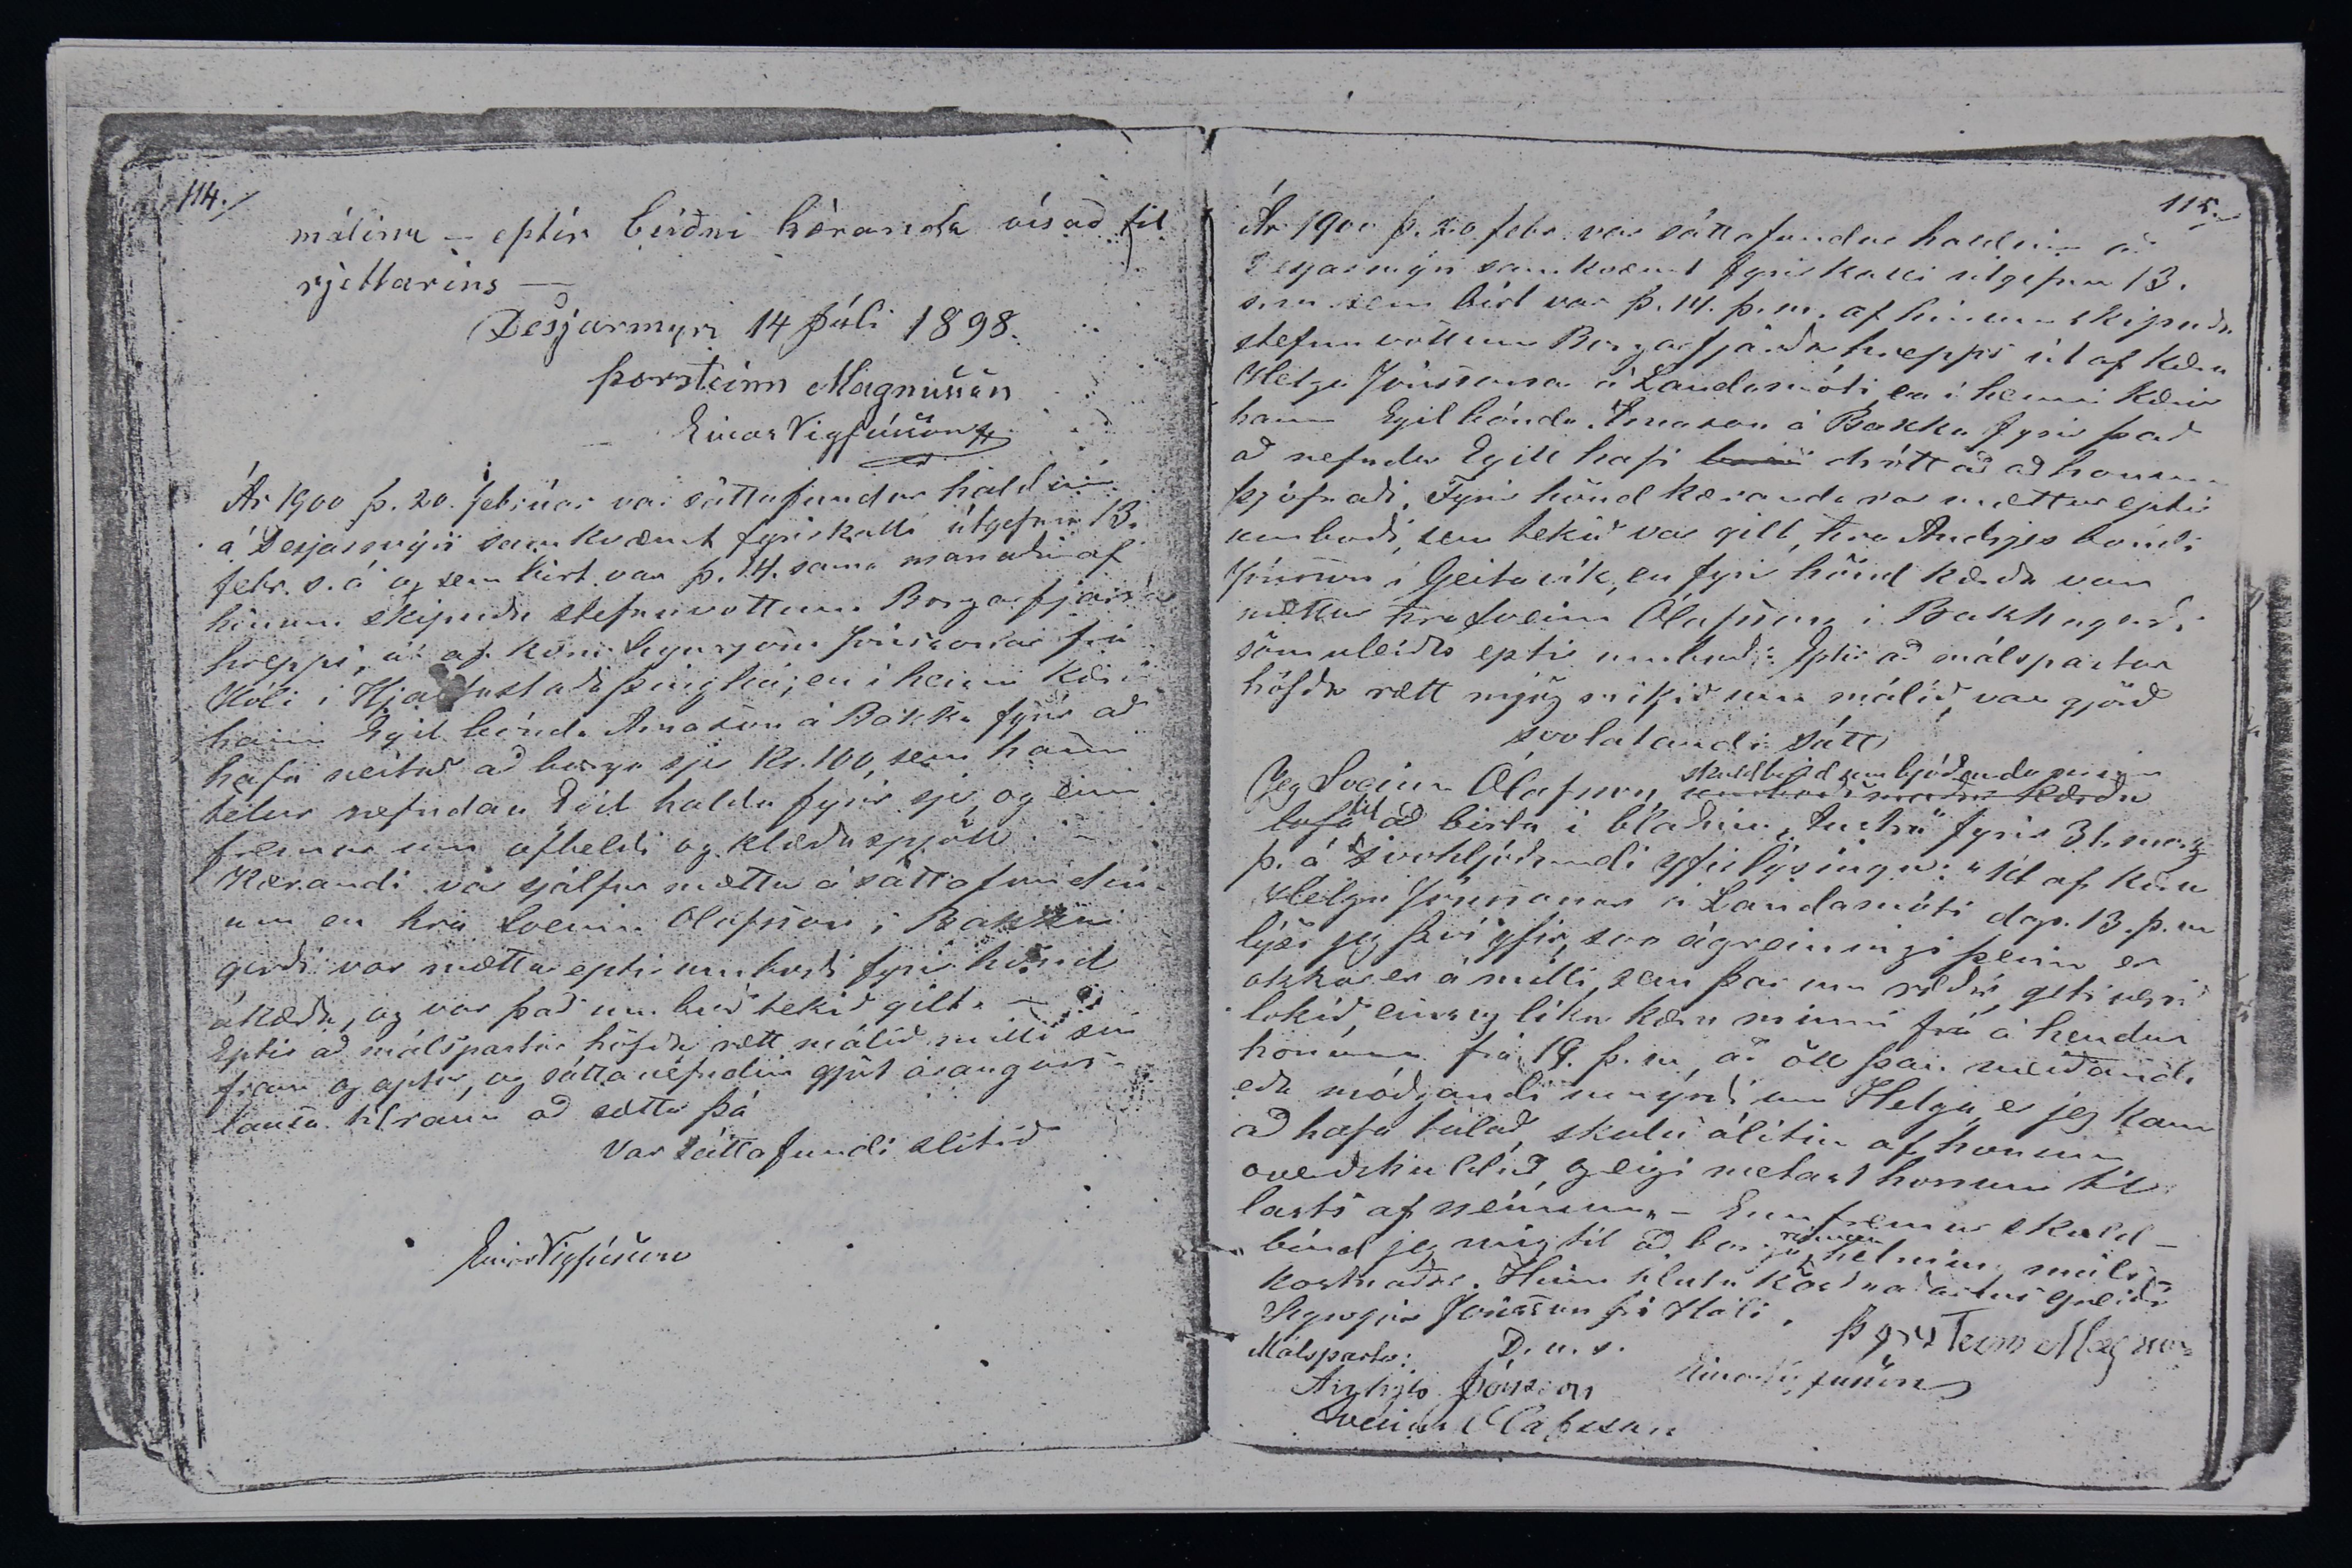 114./
málinu - eptir beiðni kæranda vísað til
rjettarins -
Desjarmyri 14 Júli 1898.
Þorsteinn Magnússon
Einar Vigfússon
Ár 1900 þ. 20. febrúar var sáttafundur haldinn
á Desjarmýri samkvæmt fyrirkalli útgefnu 13.
febr. s. á og sem birt var þ. 14. sama mánaðar af
hinum skipuðu stefnuvottum Borgarfjarðar
hrepps, út af kæru Sigurjóns Jónssonar frá
Hóli í Hjaltastaðaþinghá; en í henni kærir
hann Egil bónda Árnason á Bakka fyrir að
hafa neitað að borga sjer Kr. 100, sem hann
telur nefndan Egil halda fyrir sjer, og enn
fremur um ofbeldi og klæðaspjöll. -
Kærandi var sjálfur mættur á sáttafundin-
um en hra Sveinn Ólafsson í Bakka
gerði var mættur eptir umboði fyrir hönd
ákærða, og var það umboð tekið gilt. -
Eptir að málspartar höfðu rætt málið milli sín
fram og aptur, og sáttanefndin gjört árangurs-
lausa tilraun að sætta þá
var sáttafundi slitið
Einar Vigfússon
115.
Ár 1900 þ. 20 febr. var sáttafundur haldinn á
Desjarmýri samkvæmt fyrirkalli útgefnu 13.
s.m. sem birt var þ. 14. þ. m. af hinum skipuðu
stefnuvottum Borgarfjarðarhrepps út af kæru
Helga Jónssonar á Landamóti, en í henni kærir
hann Egil bónda Árnason á Bakka fyrir það
að nefndur Egill hafi dróttað að honum
þjófnaði. Fyrir hönd kæranda var mættur eptir
umboði, sem tekið var gilt, hra Andrjes bóndi
Jónsson í Geitavík, en fyrir hönd kærða var
mættur hra Sveinn Ólafsson í Bakkagerði
sömuleiðis eptir umboði. Eptir að málspartar
höfðu rætt mjög mikið um málið, var gjörð
svolátandi sátt
Jeg Sveinn Ólafsson, skuldbind umbjóðanda minn
til að birta í blaðinu "Austra" fyrir 31. marz
þ. á svohljóðandi yfirlýsingu: "Út af kæru
Helga Jónssonar á Landamóti dags. 13. þ. m
lýsi jeg því yfir, svo ágreiningi þeim er
okkar er á milli, sem þar um ræðir, geti verið
lokið, eins og líka kæru minni á hendur
honum frá 19. þ. m, að öll þau meiðandi
eða móðgandi ummyrði um Helga, er jeg kann
að hafa talað, skulu álitin af honum
óverðskulduð, og eigi metast honum til
lasts af neinum." - Ennfremur skuld-
bind jeg mig til að borga helming máls-
kostnaðar. Hinn hluta kostnaðarins greiðir
Sigurjón Jónsson frá Hóli.
D. u. s.
Þorsteinn Magnúss
Málspartar:
Einar Vigfússon
Andrjes Jónsson
Sveinn Ólafsson